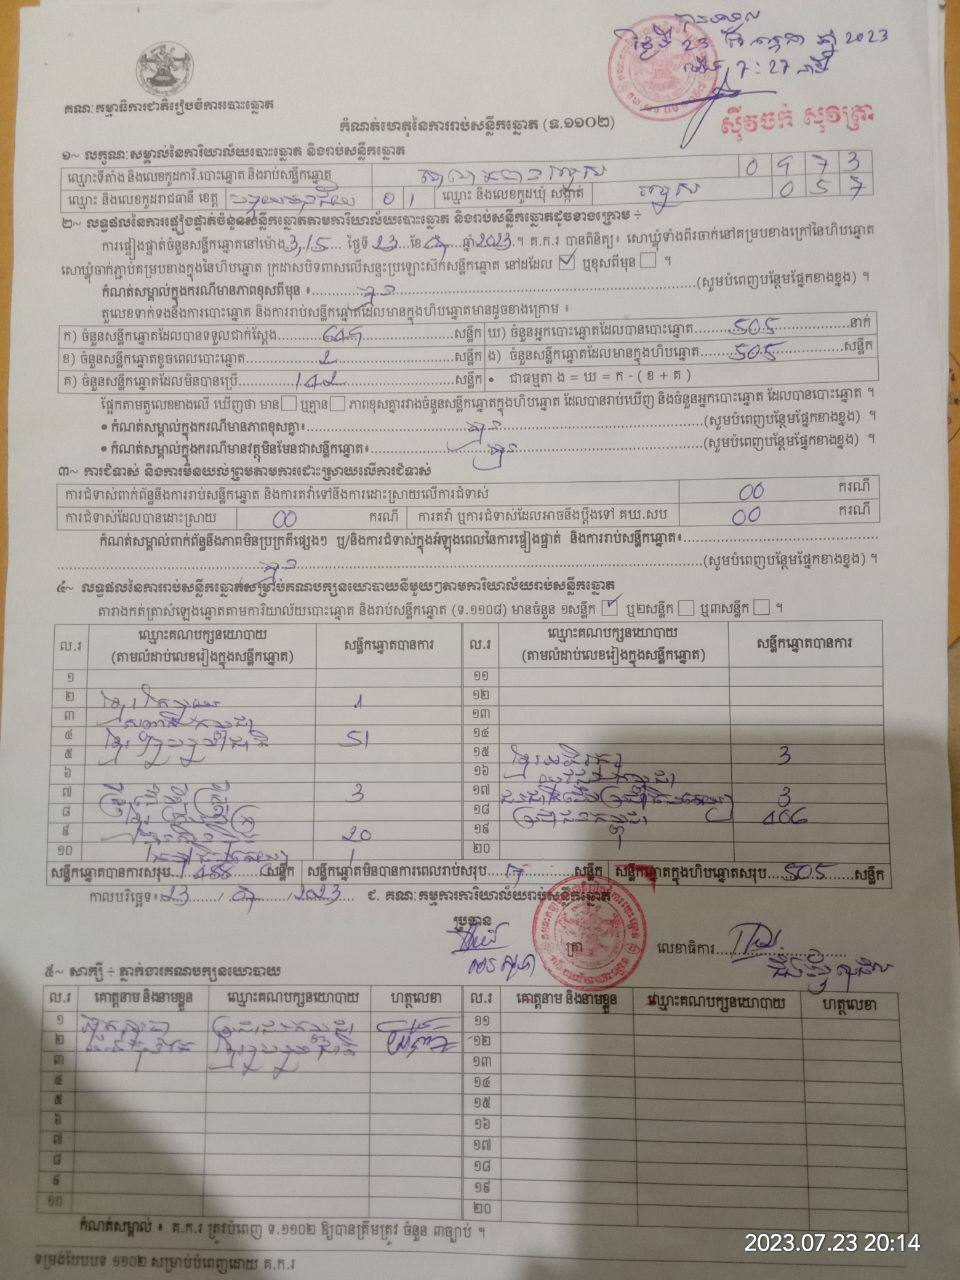 ថ្ងៃទី 23 ខែ កក្កដា ឆ្នាំ 2023
ម៉ោង 7:27 នាទី
គណៈកម្មាធិការជាតិរៀបចំការបោះឆ្នោត
កំណត់ហេតុនៃការរាប់សន្លឹកឆ្នោត (ទ.១១០២)
ស៊ីវចក់ សុវិត្រា
១~ លក្ខណៈសម្គាល់នៃការិយាល័យបោះឆ្នោត និងរាប់សន្លឹកឆ្នោត
ឈ្មោះទីតាំង និងលេខកូដការិ.បោះឆ្នោត និងរាប់សន្លឹកឆ្នោត 0 9 7 3
ឈ្មោះ និងលេខកូដរាជធានី ខេត្ត បន្ទាយមានជ័យ 0 1 ឈ្មោះ និងលេខកូដឃុំ សង្កាត់ 0 5 7
២~ លទ្ធផលនៃការផ្ទៀងផ្ទាត់ចំនួនសន្លឹកឆ្នោតតាមការិយាល័យបោះឆ្នោត និងរាប់សន្លឹកឆ្នោតដូចខាងក្រោម ÷
ការផ្ទៀងផ្ទាត់ចំនួនសន្លឹកឆ្នោតនៅម៉ោង 3,15 ថ្ងៃទី 23 ខែ ៧ ឆ្នាំ 2023 ។ គ.ក.រ បានពិនិត្យ៖ សោឃ្លុំទាំងពីរចាក់នៅគម្របខាងក្រៅនៃហិបឆ្នោត
សោឃ្លុំចាក់ភ្ជាប់គម្របខាងក្នុងនៃហិបឆ្នោត ក្រដាសបិទពាសលើសន្ទះប្រឡោះស៊កសន្លឹកឆ្នោត នៅដដែល ✓ ឬខុសពីមុន ។
កំណត់សម្គាល់ក្នុងករណីមានភាពខុសពីមុន ៖ គ្មាន (សូមបំពេញបន្ថែមផ្នែកខាងខ្នង) ។
តួលេខទាក់ទងនឹងការបោះឆ្នោត និងការរាប់សន្លឹកឆ្នោតដែលមានក្នុងហិបឆ្នោតមានដូចខាងក្រោម ៖
ក) ចំនួនសន្លឹកឆ្នោតដែលបានទទួលជាក់ស្តែង 649 សន្លឹក ឃ) ចំនួនអ្នកបោះឆ្នោតដែលបានបោះឆ្នោត 505 នាក់
ខ) ចំនួនសន្លឹកឆ្នោតខូចពេលបោះឆ្នោត 2 សន្លឹក ង) ចំនួនសន្លឹកឆ្នោតដែលមានក្នុងហិបឆ្នោត 505 សន្លឹក
គ) ចំនួនសន្លឹកឆ្នោតដែលមិនបានប្រើ 142 សន្លឹក • ជាធម្មតា ង = ឃ = ក - ( ខ + គ )
ផ្អែកតាមតួលេខខាងលើ ឃើញថា មាន ឬគ្មាន ភាពខុសគ្នារវាងចំនួនសន្លឹកឆ្នោតក្នុងហិបឆ្នោត ដែលបានរាប់ឃើញ និងចំនួនអ្នកបោះឆ្នោត ដែលបានបោះឆ្នោត ។
• កំណត់សម្គាល់ក្នុងករណីមានភាពខុសគ្នា៖ គ្មាន (សូមបំពេញបន្ថែមផ្នែកខាងខ្នង) ។
• កំណត់សម្គាល់ក្នុងករណីមានវត្ថុមិនមែនជាសន្លឹកឆ្នោត៖ គ្មាន (សូមបំពេញបន្ថែមផ្នែកខាងខ្នង) ។
៣~ ការជំទាស់ និងការមិនយល់ព្រមតាមការដោះស្រាយលើការជំទាស់
ការជំទាស់ពាក់ព័ន្ធនឹងការរាប់សន្លឹកឆ្នោត និងការតវ៉ាទៅនឹងការដោះស្រាយលើការជំទាស់ 00 ករណី
ការជំទាស់ដែលបានដោះស្រាយ 00 ករណី ការតវ៉ា ឬការជំទាស់ដែលអាចនឹងប្តឹងទៅ គឃ.សប 00 ករណី
កំណត់សម្គាល់ពាក់ព័ន្ធនឹងភាពមិនប្រក្រតីផ្សេងៗ ឬ/និងការជំទាស់ក្នុងអំឡុងពេលនៃការផ្ទៀងផ្ទាត់ និងការរាប់សន្លឹកឆ្នោត៖
គ្មាន (សូមបំពេញបន្ថែមផ្នែកខាងខ្នង) ។
៤~ លទ្ធផលនៃការរាប់សន្លឹកឆ្នោតសម្រាប់គណបក្សនយោបាយនីមួយៗតាមការិយាល័យរាប់សន្លឹកឆ្នោត
តារាងកត់ត្រាសំឡេងឆ្នោតតាមការិយាល័យបោះឆ្នោត និងរាប់សន្លឹកឆ្នោត (ទ.១១០៨) មានចំនួន ១សន្លឹក ✓ ឬ២សន្លឹក ឬ៣សន្លឹក ។
ល.រ ឈ្មោះគណបក្សនយោបាយ (តាមលំដាប់លេខរៀងក្នុងសន្លឹកឆ្នោត) សន្លឹកឆ្នោតបានការ ល.រ ឈ្មោះគណបក្សនយោបាយ (តាមលំដាប់លេខរៀងក្នុងសន្លឹកឆ្នោត) សន្លឹកឆ្នោតបានការ
១ ១១
២ 1 ១២
៣ ១៣
៤ 51 ១៤
៥ ១៥ 3
៦ ១៦
៧ 3 ១៧ 3
៨ ១៨ 406
៩ 20 ១៩
១០ 1 ២០
សន្លឹកឆ្នោតបានការសរុប 488 សន្លឹក សន្លឹកឆ្នោតមិនបានការពេលរាប់សរុប 17 សន្លឹក សន្លឹកឆ្នោតក្នុងហិបឆ្នោតសរុប 505 សន្លឹក
កាលបរិច្ឆេទ៖ 23 ៧ 2023 ជ. គណៈកម្មការការិយាល័យរាប់សន្លឹកឆ្នោត
ប្រធាន
ត្រា លេខាធិការ
៥~ សាក្សី ÷ ភ្នាក់ងារគណបក្សនយោបាយ
ល.រ គោត្តនាម និងនាមខ្លួន ឈ្មោះគណបក្សនយោបាយ ហត្ថលេខា ល.រ គោត្តនាម និងនាមខ្លួន ឈ្មោះគណបក្សនយោបាយ ហត្ថលេខា
១ ប្រជាជនកម្ពុជា ១១
២ ១២
៣ ១៣
៤ ១៤
៥ ១៥
៦ ១៦
៧ ១៧
៨ ១៨
៩ ១៩
១០ ២០
កំណត់សម្គាល់ ៖ គ.ក.រ ត្រូវបំពេញ ទ.១១០២ ឱ្យបានត្រឹមត្រូវ ចំនួន ៣ច្បាប់ ។
ទម្រង់បែបបទ ១១០២ សម្រាប់បំពេញដោយ គ.ក.រ
2023.07.23 20:14